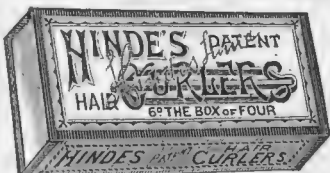 HINDE'S PATENT
HAIR CURLERS
6D THE BOX OF FOUR
HINDES PATT HAIR CURLERS.